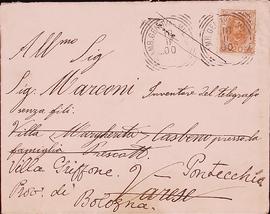 All.mo Sig
Sig. Marconi Inventore del telegrafo
senza fili.
Villa Margherita Casbeno presso la
famiglia Prescott
Villa Griffone. Pontecchio
Prov. di Bologna. Varese